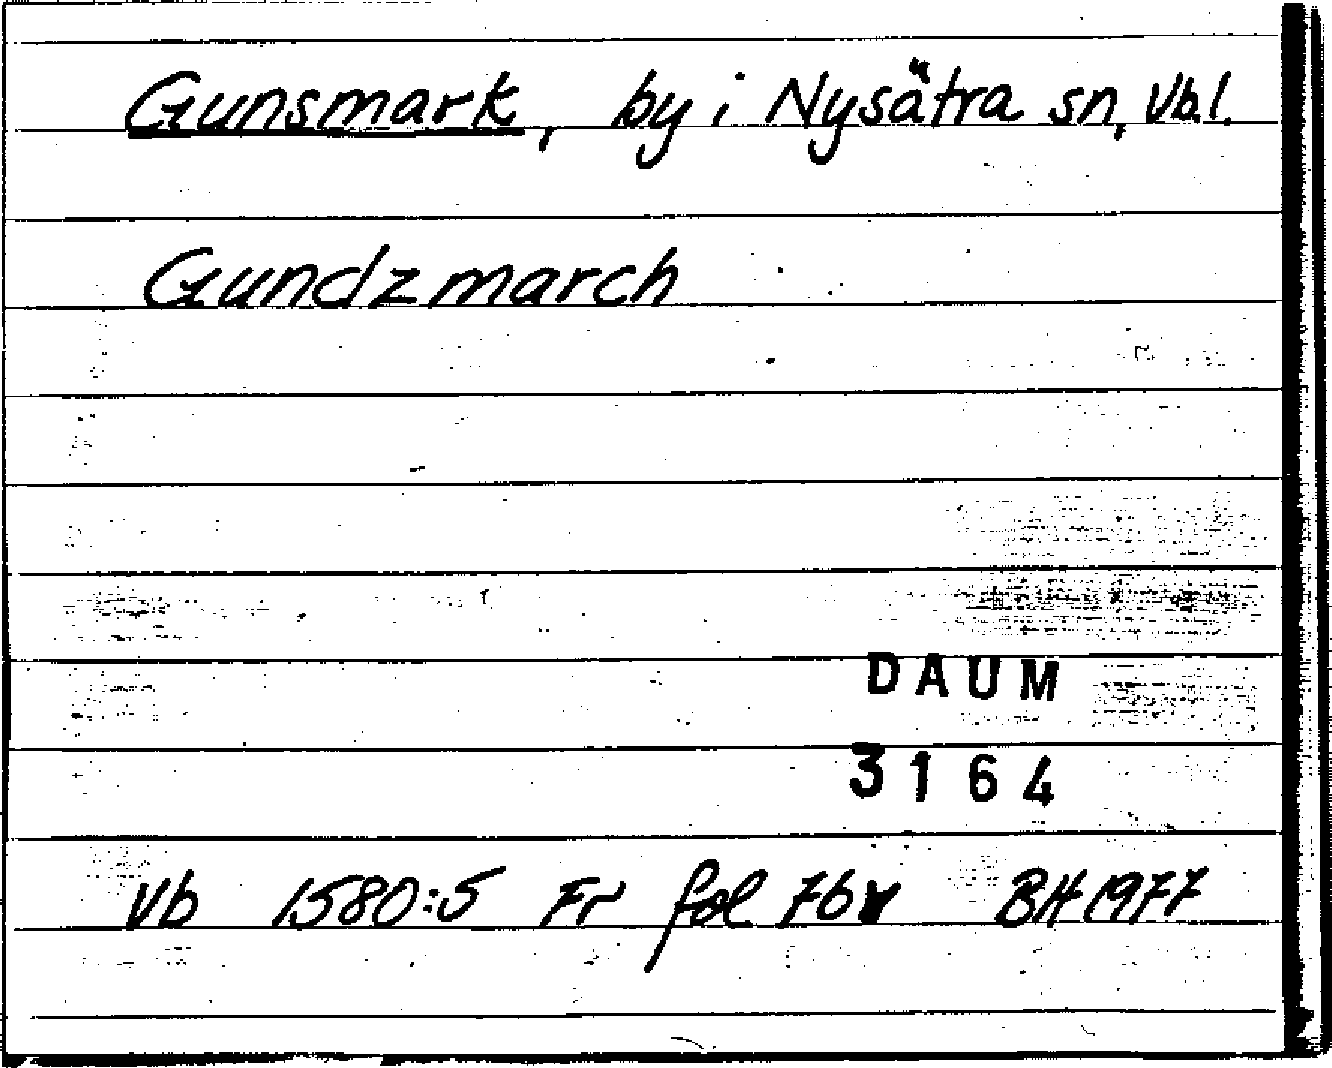 Gunsmark, by i Nysätra sn, Vb.l.
Gundzmarch
DAUM
3164
Vb 1580:5 Fr fol 76v BH 1977